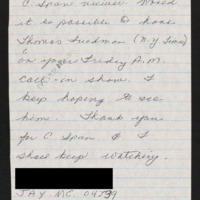 C. Span viewer. Would
it be possible to have
Thomas Friedman (N.Y Times)
on your Friday A.M.
call-in show. I
keep hoping to see
him. Thank you
for C Span & I
shall keep watching.
JAY ME. 04239